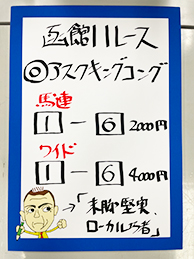 函館11レース
◎アスクキングコング
馬連
1-6 2000円
ワイド
1-6 4000円
「末脚堅実、
ローカル巧者」